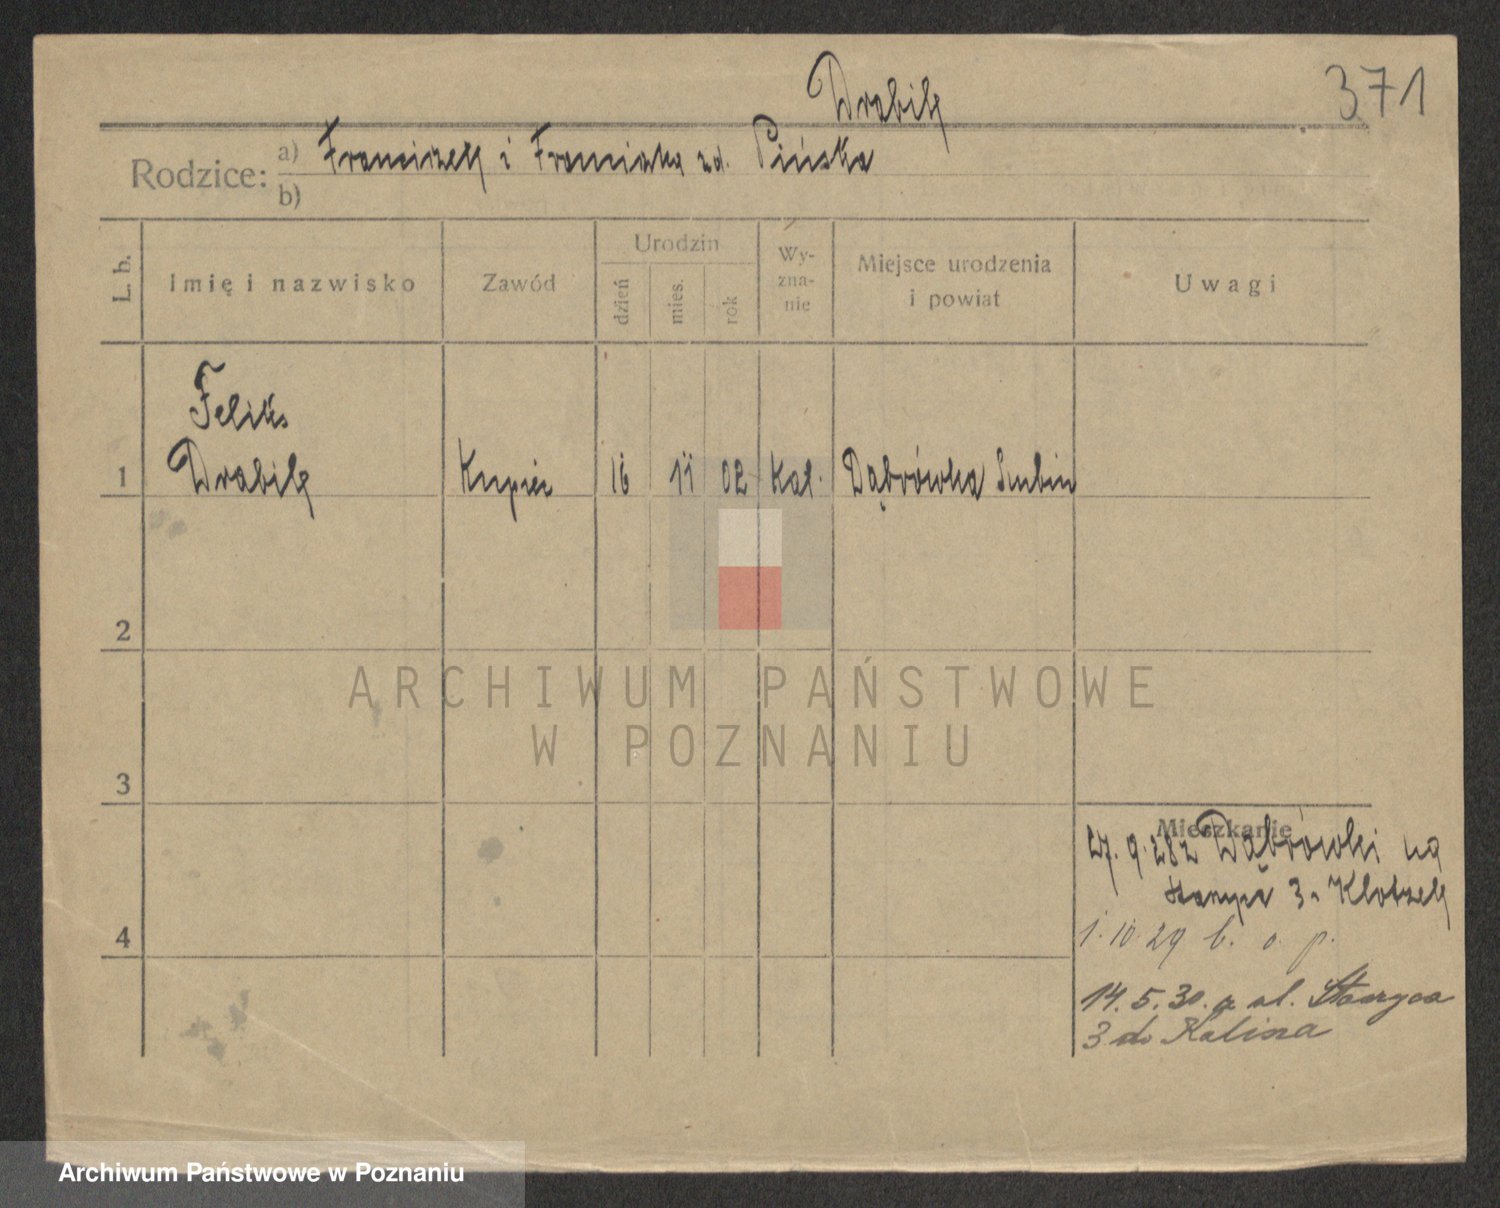 Drabik
371
Rodzice:
a) Franciszek i Franciszka zd. Pińska
b)
L. b.
Imię i nazwisko
Zawód
Urodzin
dzień
mies.
rok
Wy-
zna-
nie
Miejsce urodzenia
i powiat
Uwagi
Feliks
1 Drabik Kupiec 16 11 02 Kat. Dąbrówka Szubin
2
ARCHIWUM PAŃSTWOWE
W POZNANIU
3
Mieszkanie
27. 9. 28 z Dąbrówki na
3 Klotzek
4
1. 10. 29 b. o. p.
14. 5. 30. z ul. Staszyca
3 do Kalisza
Archiwum Państwowe w Poznaniu